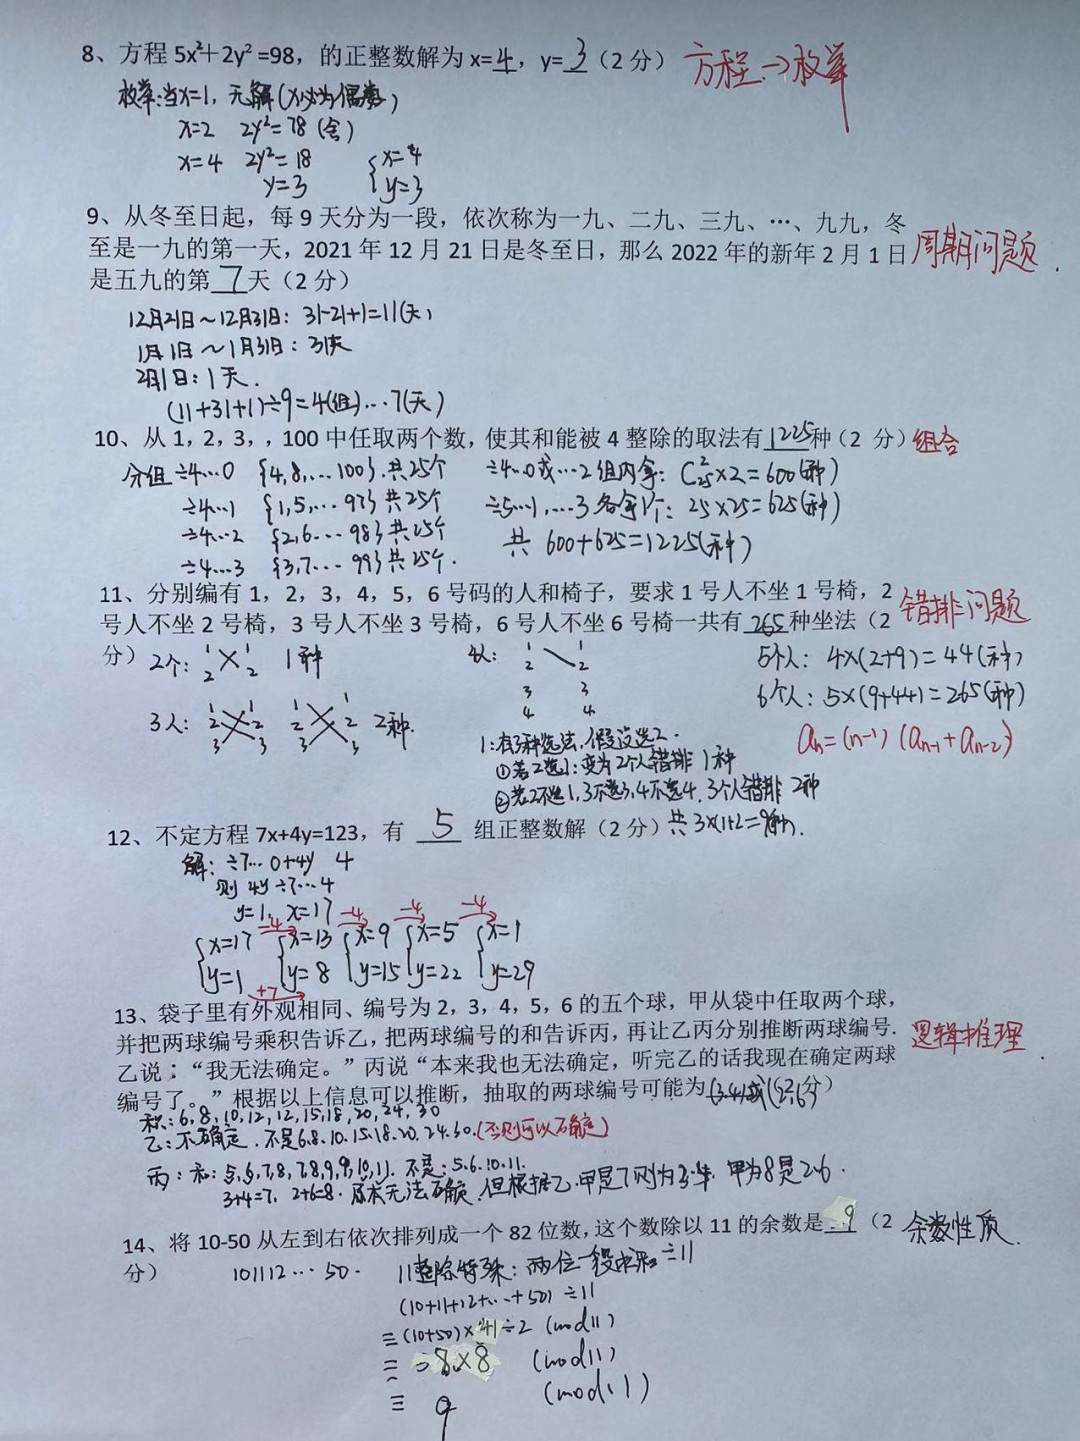 8、方程 5x²+2y²=98，的正整数解为 x=4，y=3（2 分） 方程→枚举
枚举:当x=1，无解(x必为偶数)
x=2 2y²=78(舍)
x=4 2y²=18 {x=4
y=3 y=3
9、从冬至日起，每 9 天分为一段，依次称为一九、二九、三九、…、九九，冬
至是一九的第一天，2021 年 12 月 21 日是冬至日，那么 2022 年的新年 2 月 1 日 周期问题.
是五九的第 7 天（2 分）
12月21日～12月31日：31-21+1=11(天)
1月1日～1月31日：31天
2月1日：1天.
(11+31+1)÷9=4(组)…7(天)
10、从 1，2，3，，100 中任取两个数，使其和能被 4 整除的取法有 1225 种（2 分） 组合
分组 ÷4…0 {4,8,…100}.共25个 ÷4…0或…2 组内拿：C²₂₅×2=600(种)
÷4…1 {1,5,…97}共25个 ÷5…1,…3 各拿1个：25×25=625(种)
÷4…2 {2,6…98}共25个 共 600+625=1225(种)
÷4…3 {3,7…99}共25个.
11、分别编有 1，2，3，4，5，6 号码的人和椅子，要求 1 号人不坐 1 号椅，2 错排问题
号人不坐 2 号椅，3 号人不坐 3 号椅，6 号人不坐 6 号椅一共有 265 种坐法（2
分） 2个: 1 1 1种 4人: 1 1 5个人：4×(2+9)=44(种)
2 2 2 2 6个人：5×(9+44)=265(种)
3人: 1 1 1 1 3 3
2 2 2 2 2种. 4 4 aₙ=(n-1)(aₙ₋₁+aₙ₋₂)
3 3 3 3 1:有3种选法,假设选2.
①若2选1:变为2个人错排 1种
②若2不选1,3不选3,4不选4.3个人错排 2种
12、不定方程 7x+4y=123，有 5 组正整数解（2 分） 共3×(1+2)=9(种).
解：÷7…0+4y 4
则 4y÷7…4
y=1, x=17
{x=17 -4 {x=13 -4 {x=9 -4 {x=5 -4 {x=1
y=1 +7 y=8 y=15 y=22 y=29
13、袋子里有外观相同、编号为 2，3，4，5，6 的五个球，甲从袋中任取两个球，
并把两球编号乘积告诉乙，把两球编号的和告诉丙，再让乙丙分别推断两球编号. 逻辑推理.
乙说：“我无法确定。”丙说“本来我也无法确定，听完乙的话我现在确定两球
编号了。”根据以上信息可以推断，抽取的两球编号可能为 (3.4)或(2,6)（2 分）
积：6,8,10,12,12,15,18,20,24,30
乙：不确定.不是6.8.10.15.18.20.24.30.(否则可以确定)
丙：和：5,6,7,8,7,8,9,9,10,11.不是：5.6.10.11.
3+4=7, 2+6=8.原本无法确定,但根据乙.甲是7则为3.4. 甲为8是2.6.
14、将 10-50 从左到右依次排列成一个 82 位数，这个数除以 11 的余数是 9（2 余数性质.
分） 101112…50. 11整除特殊：两位一段求和÷11
(10+11+12+…+50)÷11
≡(10+50)×41÷2 (mod11)
≡ 8×8 (mod11)
≡ 9 (mod11)